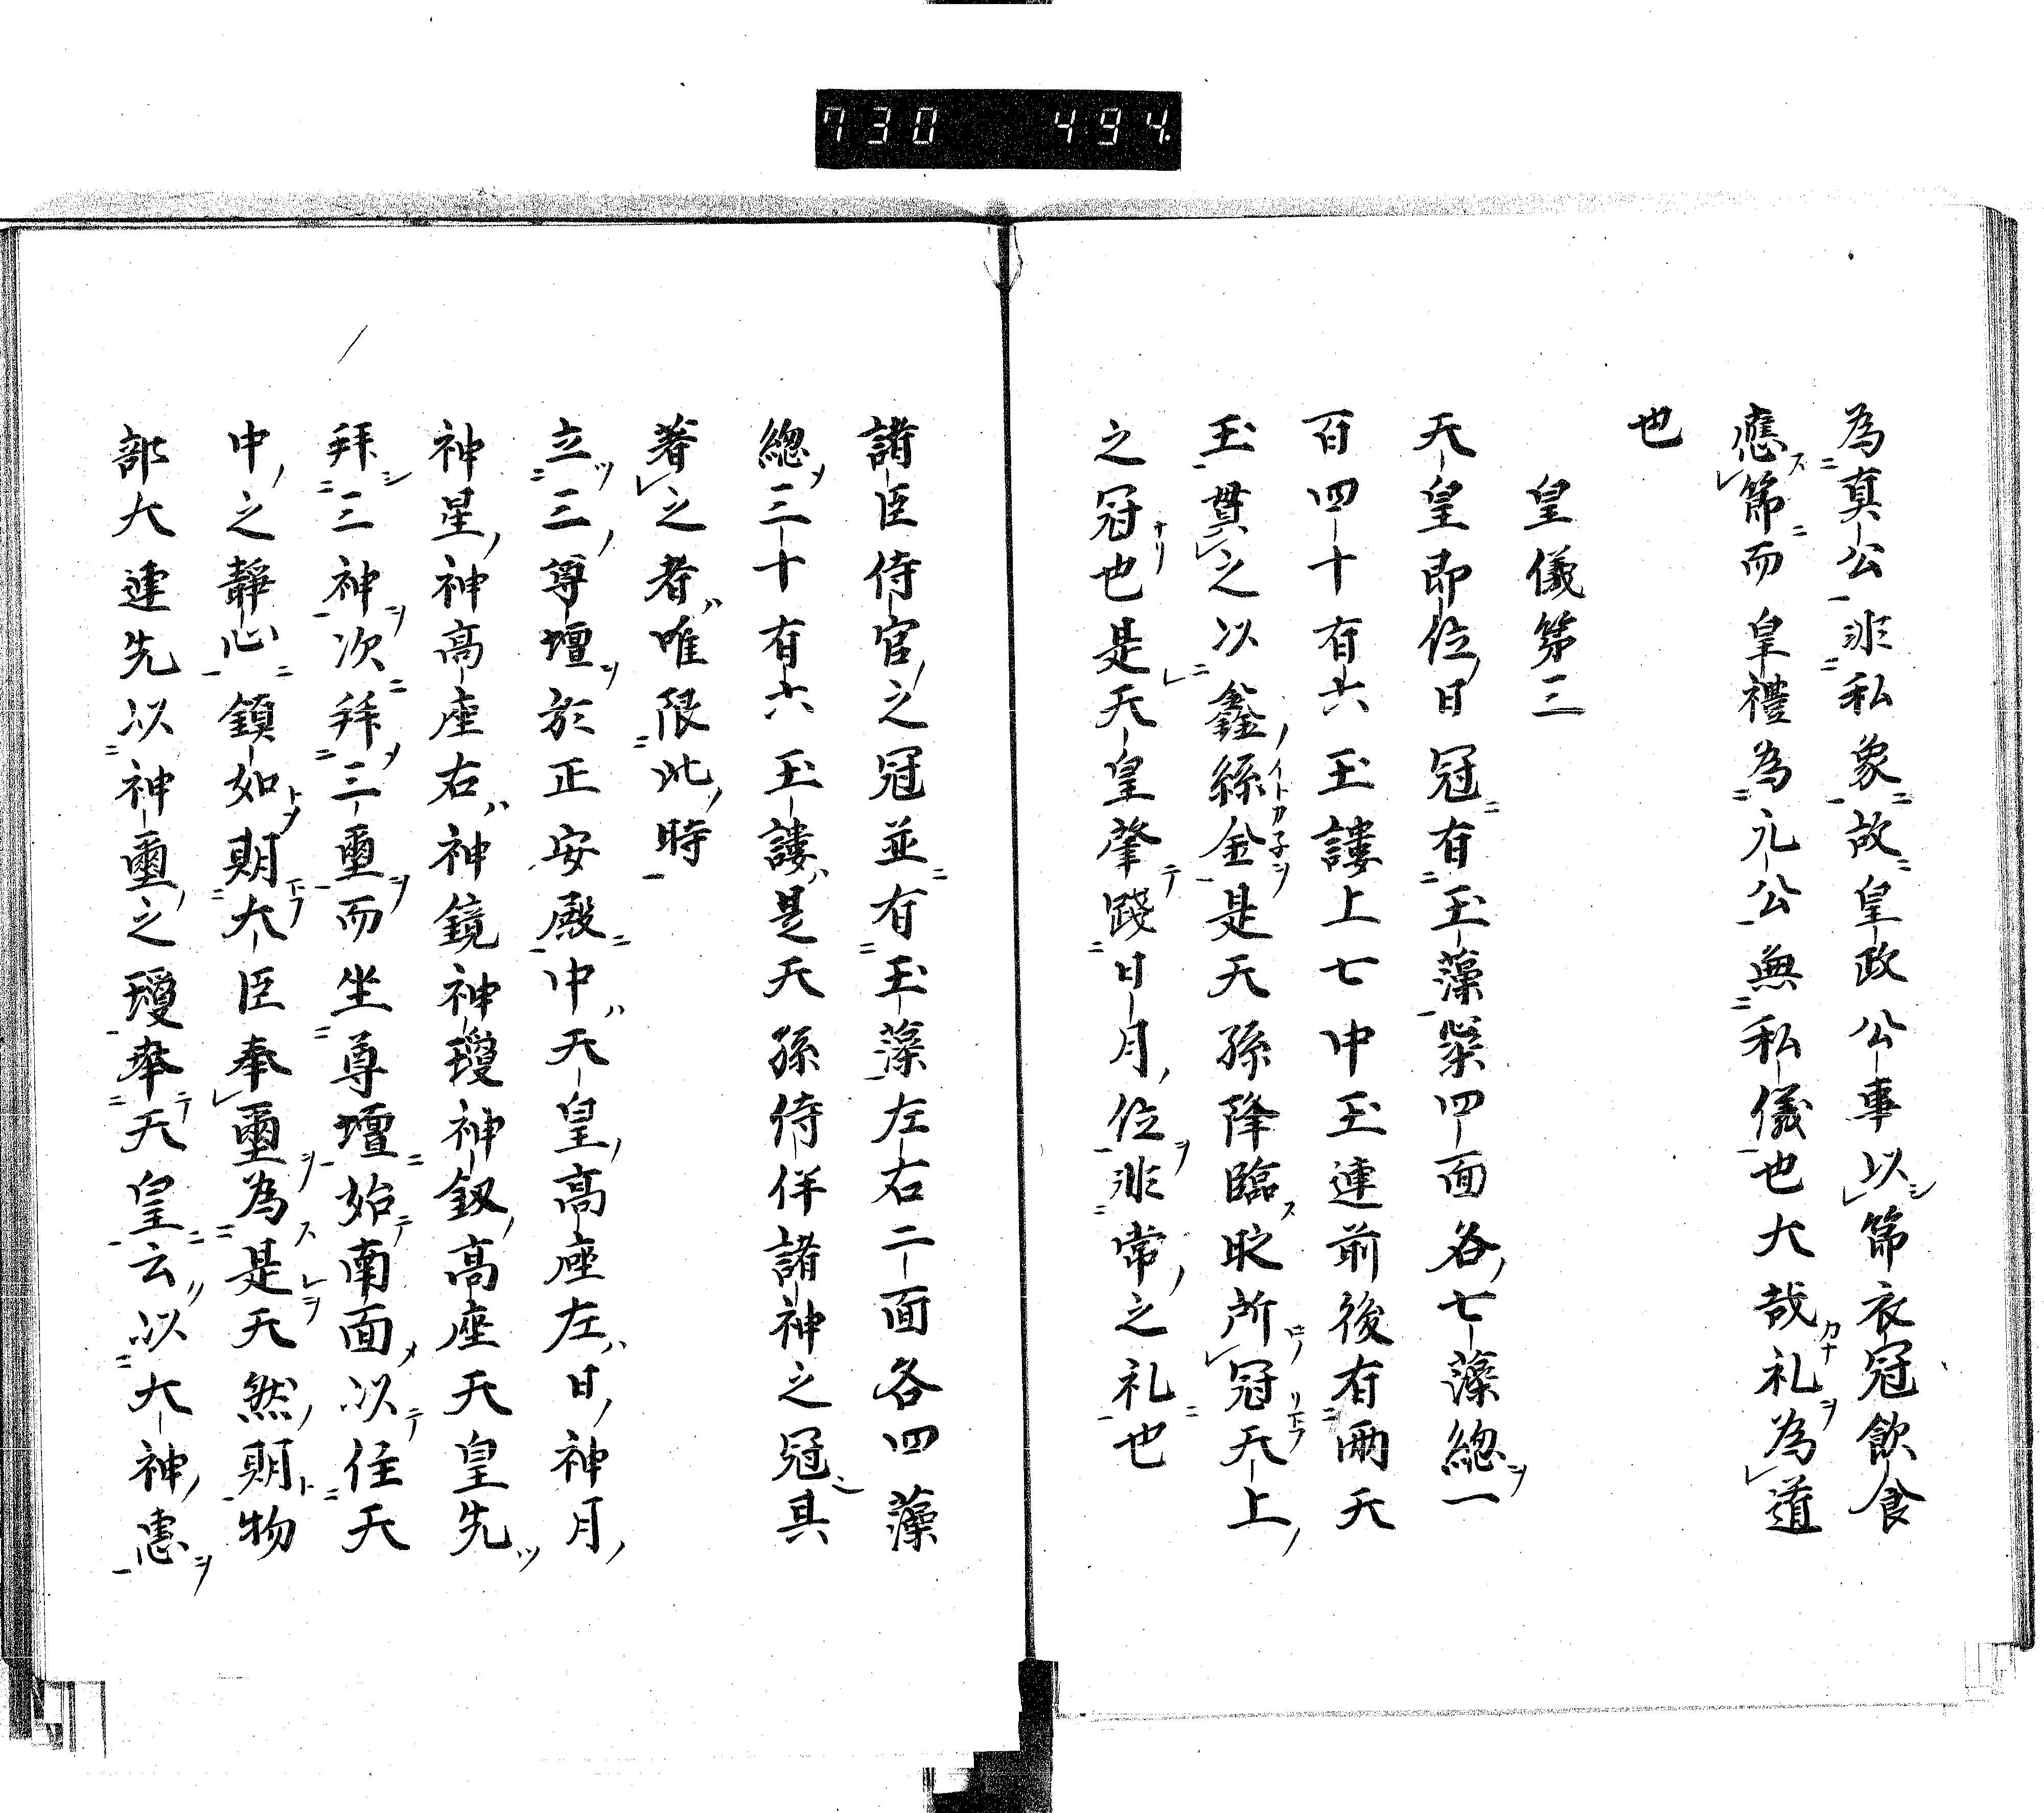 730 494
為真公非私象故皇政公事以節衣冠飲食
應節而皇禮為元公無私儀也大哉礼為道
也
皇儀第三
天皇即位日冠有玉藻梁四面各七藻總一
百四十有六玉謱上七中玉連前後有兩天
玉貫之以鑫絲金是天孫降臨時所冠天上
之冠也是天皇肇踐日月位非常之礼也
諸臣侍官之冠並有玉藻左右二面各四藻
總三十有六玉謱是天孫侍伴諸神之冠其
著之者唯限此時
立三尊壇於正安殿中天皇高座左日神月
神星神高座右神鏡神瓊神釼高座天皇先
拜三神次拜三璽而坐尊壇始南面以住天
中之靜心鎮如期大臣奉璽為是天然期物
部大連先以神璽之瓊奉天皇云以大神惠